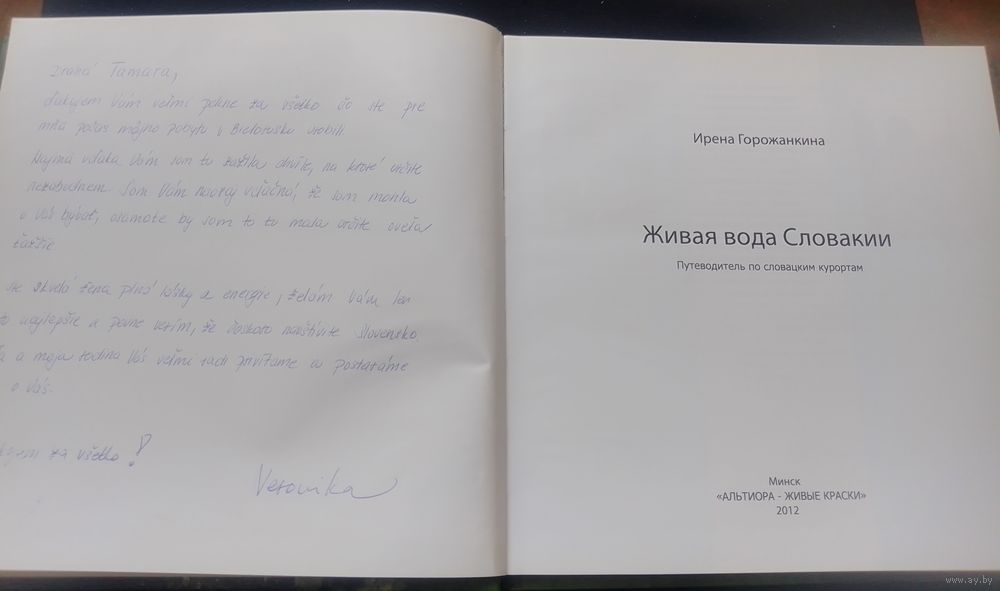 Drahá Tamara,
ďakujem Vám veľmi pekne za všetko čo ste pre
mňa počas môjho pobytu v Bielorusku urobili.
Najmä vďaka Vám som tu zažila chvíle, na ktoré určite
nezabudnem. Som Vám naozaj vďačná, že som mohla
u Vás bývať, osamote by som to tu mala určite oveľa
ťažšie
ste skvelá žena plná lásky a energie, želám Vám len
to najlepšie a pevne verím, že čoskoro navštívite Slovensko
a moja rodina Vás veľmi radi privítame a postaráme
o Vás.
za všetko!
Veronika
Ирена Горожанкина
Живая вода Словакии
Путеводитель по словацким курортам
Минск
«АЛЬТИОРА - ЖИВЫЕ КРАСКИ»
2012
www.ay.by